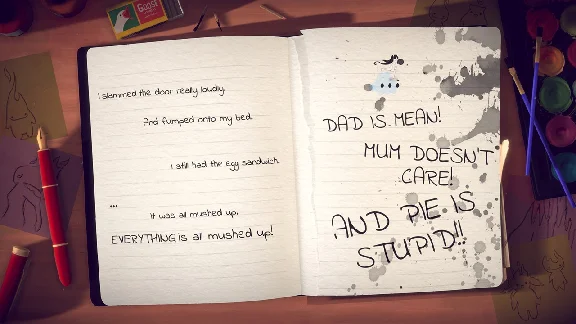 Goose
I slammed the door really loudly.
And fumped onto my bed.
I still had the egg sandwich.
...
It was all mushed up.
EVERYTHING is all mushed up!
DAD IS MEAN!
MUM DOESN'T
CARE!
AND PIE IS
STUPID!!